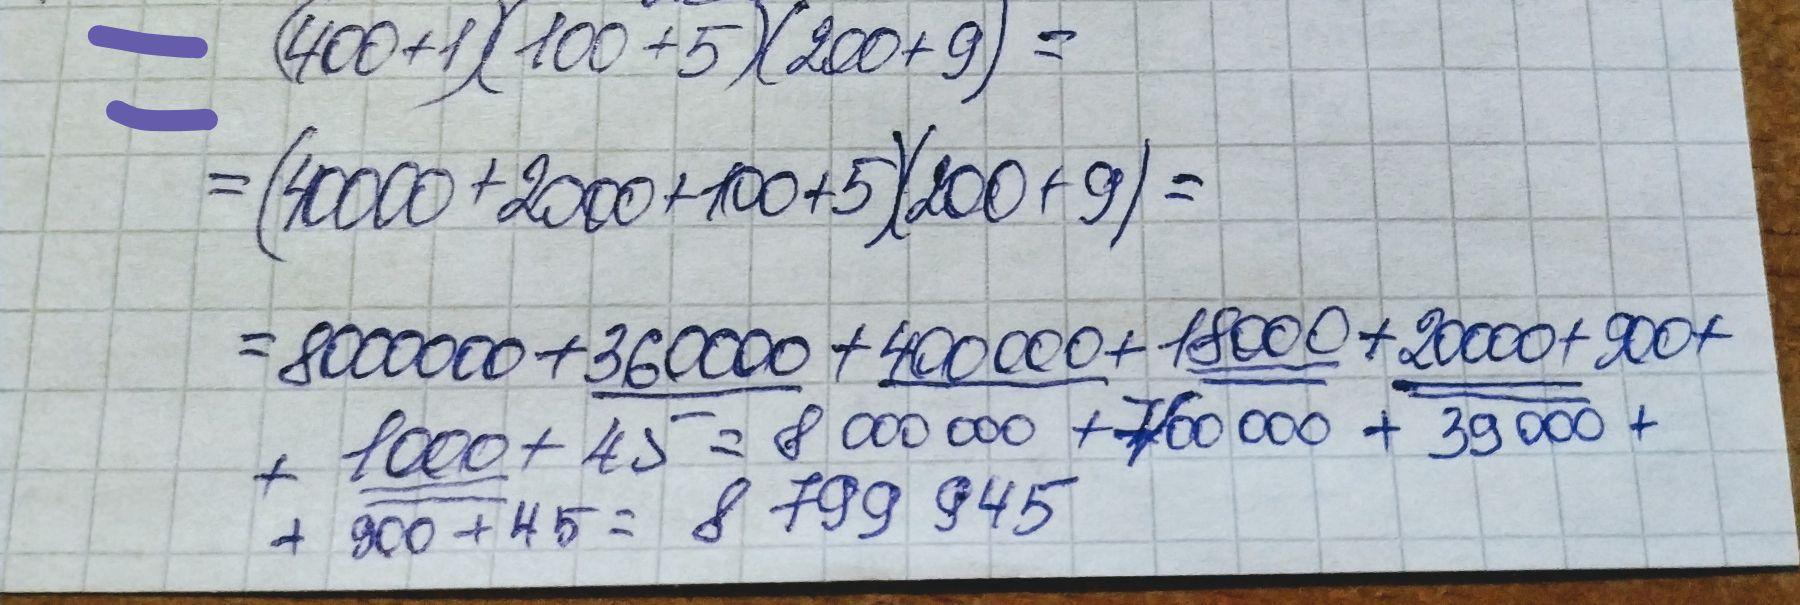 = (400+1)(100+5)(200+9)=
=(40000+2000+100+5)(200+9)=
=8000000+360000+400000+18000+20000+900+
+ 1000+45=8 000 000 +760 000 + 39 000 +
+ 900+45= 8 799 945